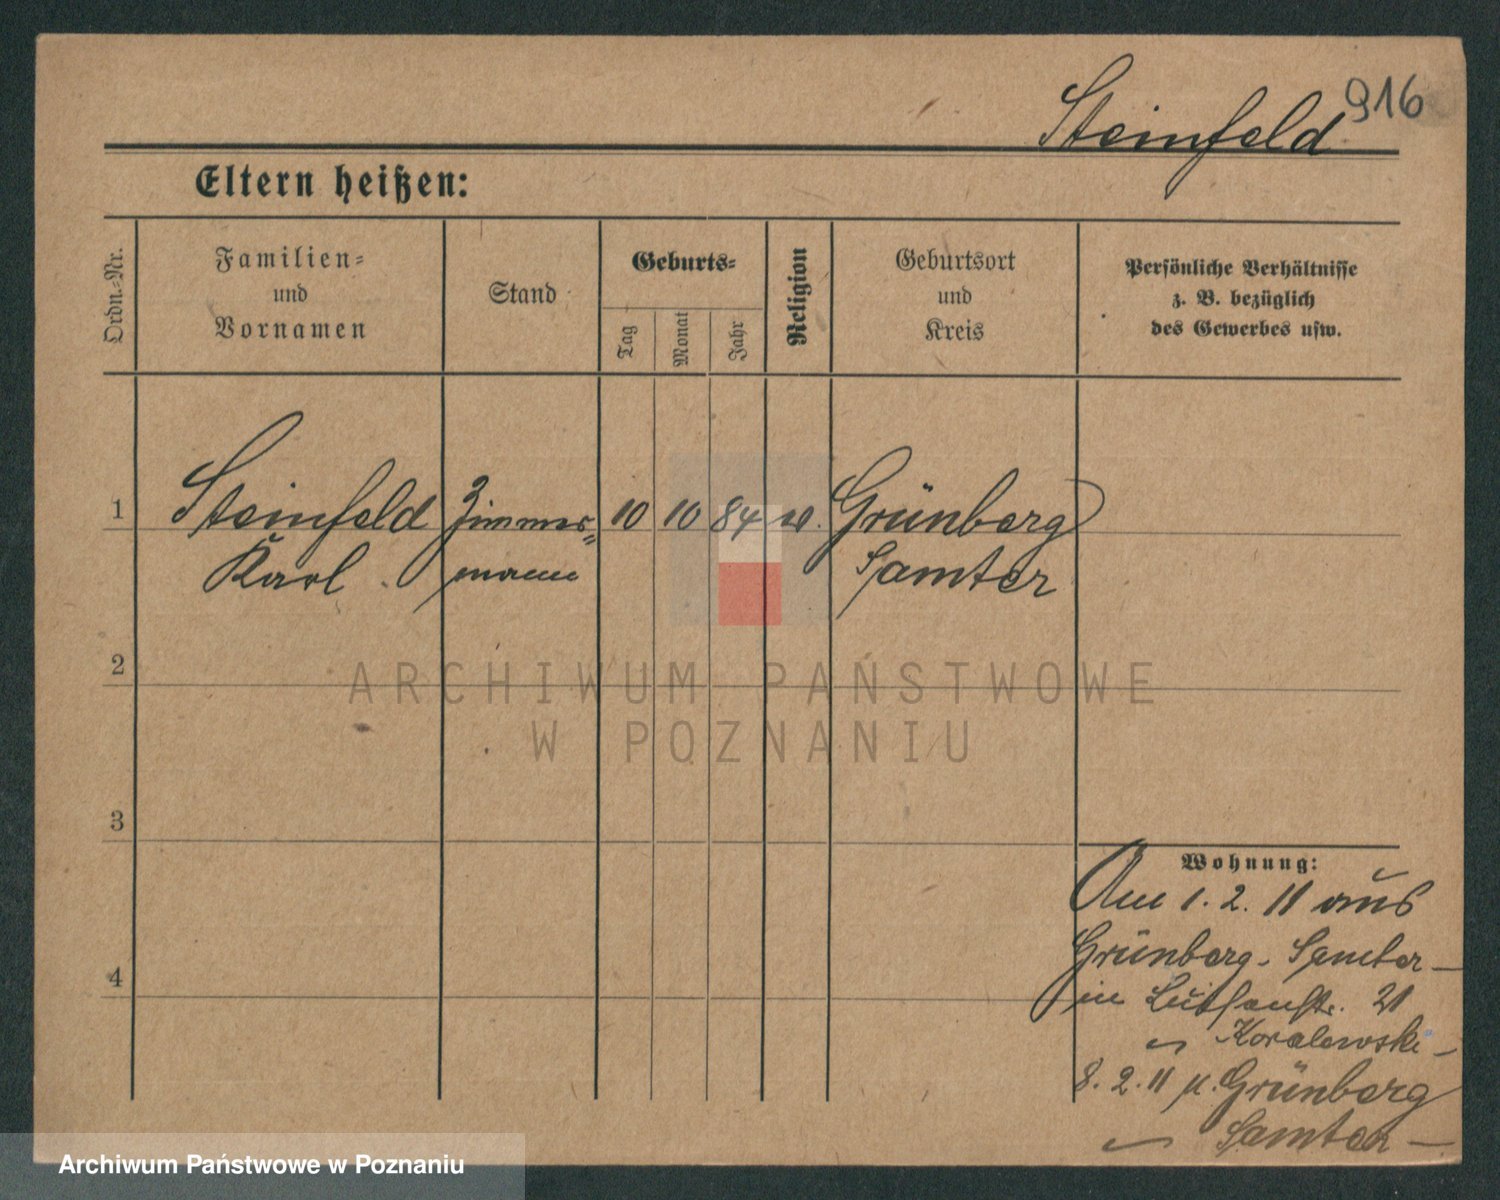 Steinfeld 916
Eltern heißen:
Ordn.-Nr.
Familien-
und
Vornamen
Stand
Geburts-
Tag
Monat
Jahr
Religion
Geburtsort
und
Kreis
Persönliche Verhältnisse
z. B. bezüglich
des Gewerbes usw.
1
Steinfeld
Karl
Zimmer-
mann
10 10 84
Grünberg
Samter
2
ARCHIWUM PAŃSTWOWE
W POZNANIU
3
4
Wohnung:
Am 1. 2. 11 aus
Grünberg - Samter -
in Luisenstr. 21
Koralewski -
8. 2. 11 n. Grünberg
Samter -
Archiwum Państwowe w Poznaniu